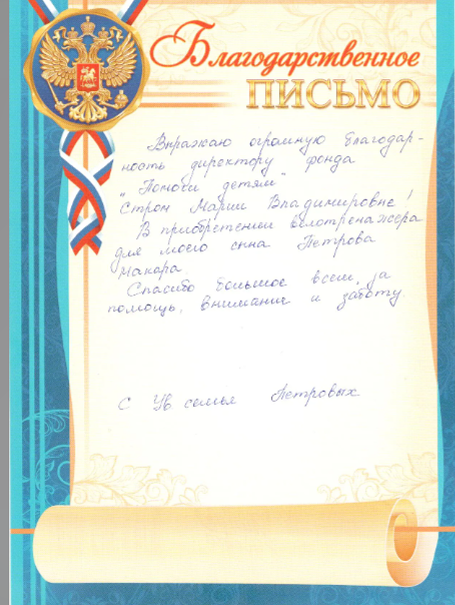 Благодарственное
ПИСЬМО
Выражаю огромную благодар-
ность директору фонда
"Помоги детям"
Стром Марии Владимировне!
В приобретении велотренажера
для моего сына Петрова
Макара.
Спасибо большое всем, за
помощь, внимание и заботу.
С Ув семья Петровых